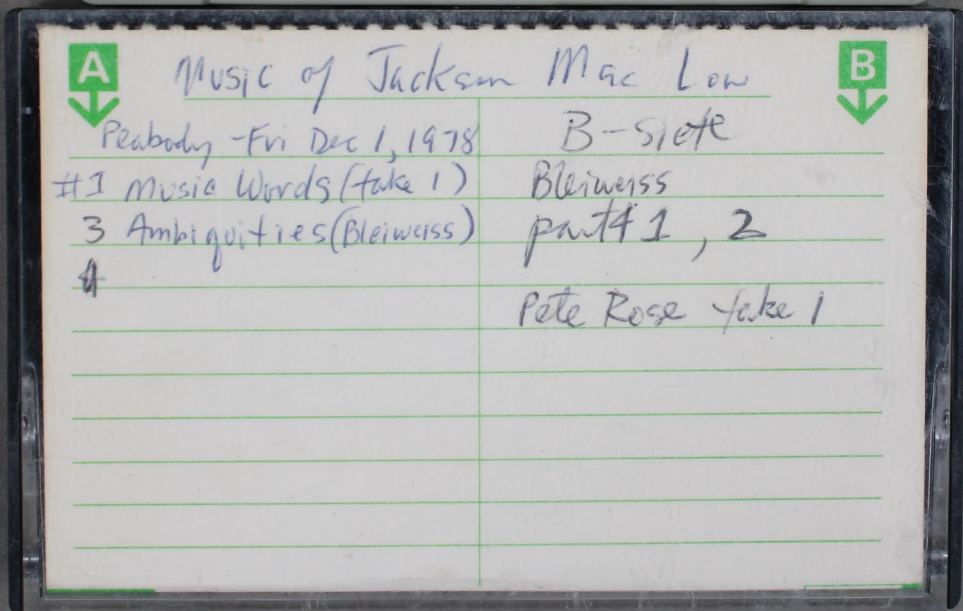 A
B
Music of Jackson Mac Low
Peabody - Fri Dec 1, 1978
#1 Music Words (take 1)
3 Ambiquities (Bleiweiss)
4
B-side
Bleiweiss
part #1, 2
Pete Rose take 1